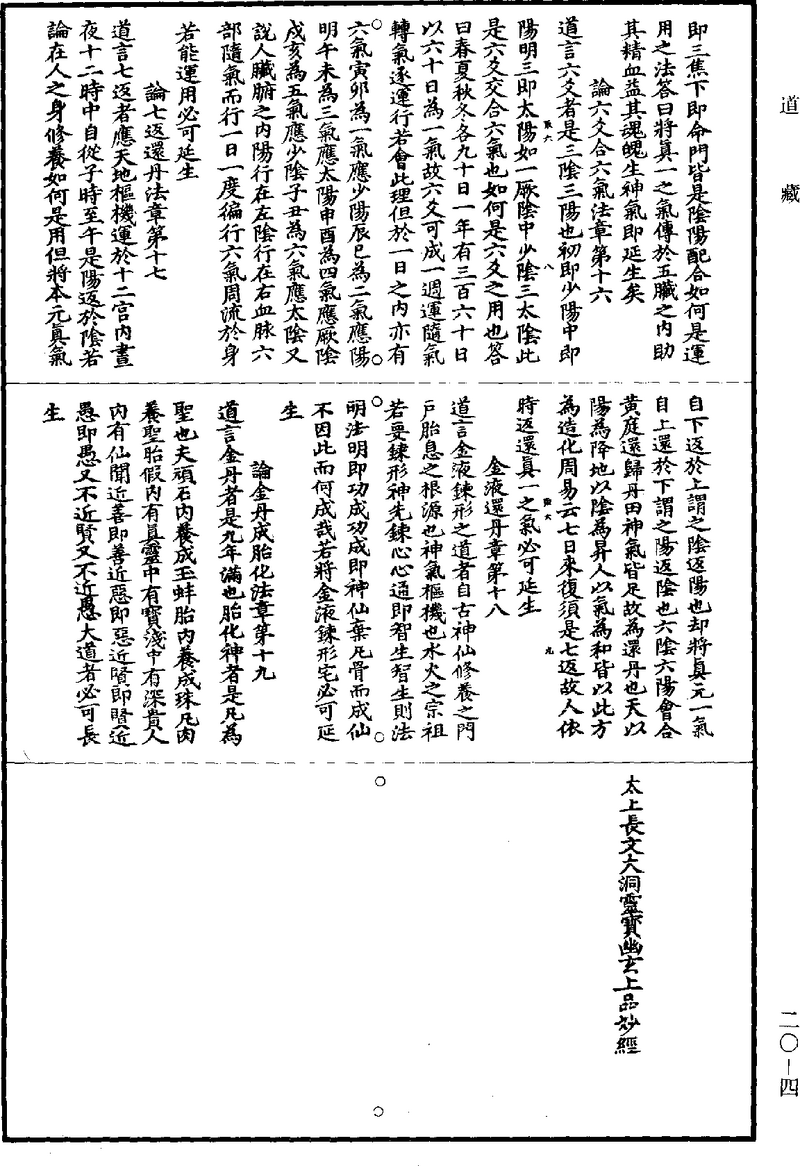 道藏
即三焦下即命門皆是陰陽配合如何是運
用之法答曰將真一之氣傳於五臟之內助
其精血益其魂魄生神氣即延生矣
論六爻合六氣法章第十六
道言六爻者是三陰三陽也初即少陽中即
陽明三即太陽如一厥陰中少陰三太陰此
是六爻交合六氣也如何是六爻之用也答
曰春夏秋冬各九十日一年有三百六十日
以六十日為一氣故六爻可成一週運隨氣
轉氣逐運行若會此理但於一日之內亦有
六氣寅卯為一氣應少陽辰巳為二氣應陽
明午未為三氣應太陽申酉為四氣應厥陰
戌亥為五氣應少陰子丑為六氣應太陰又
說人臟腑之內陽行在左陰行在右血脉六
部隨氣而行一日一度徧行六氣周流於身
若能運用必可延生
論七返還丹法章第十七
道言七返者應天地樞機運於十二宮內晝
夜十二時中自從子時至午是陽返於陰若
論在人之身修養如何是用但將本元真氣
自下返於上謂之陰返陽也却將真元一氣
自上還於下謂之陽返陰也六陰六陽會合
黃庭還歸丹田神氣皆足故為還丹也天以
陽為降地以陰為昇人以氣為和皆以此方
為造化周易云七日來復須是七返故人依
時返還真一之氣必可延生
金液還丹章第十八
道言金液鍊形之道者自古神仙修養之門
戶胎息之根源也神氣樞機也水火之宗祖
若要鍊形神先鍊心心通即智生智生則法
明法明即功成功成即神仙棄凡骨而成仙
不因此而何成哉若將金液鍊形宅必可延
生
論金丹成胎化法章第十九
道言金丹者是九年滿也胎化神者是凡為
聖也夫頑石內養成玉蚌胎內養成珠凡肉
養聖胎假內有真靈中有寶淺中有深貴人
內有仙聞近善即善近惡即惡近賢即賢近
愚即愚又不近賢又不近愚大道者必可長
生
太上長文大洞靈寶幽玄上品妙經
二〇－四